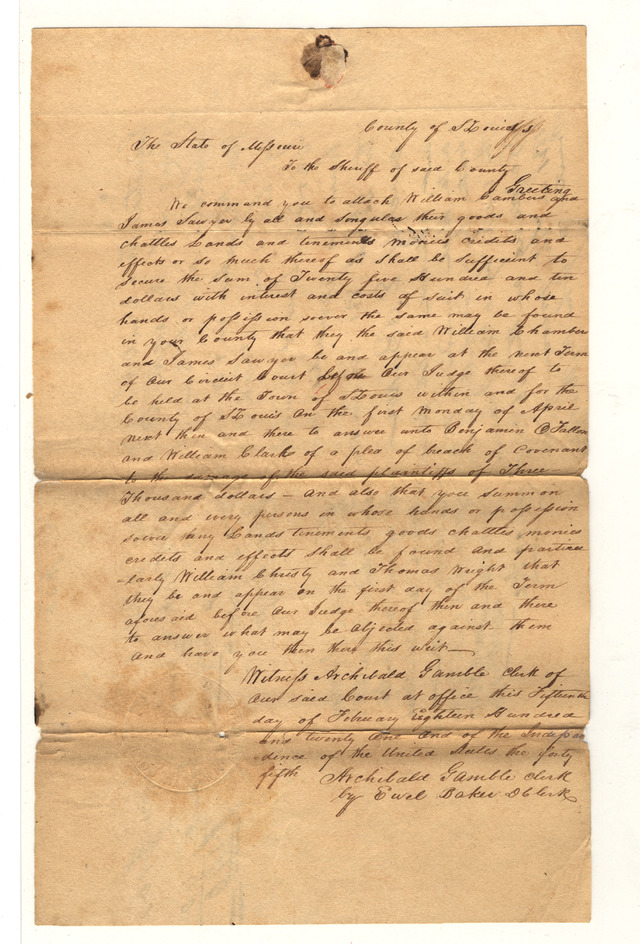 County of St Louis ss
The State of Missouri
To the Sheriff of said County
Greeting
We command you to attach William Cambers and
James Sawyer by all and singular their goods and
chattles Lands and tenements monies credits and
effects or so much thereof as shall be sufficient to
secure the sum of Twenty five Hundred and ten
dollars with interest and costs of suit in whose
hands or possission soever the same may be found
in your County that they the said William Chambers
and James Sawyer be and appear at the next Term
of our Circuit Court before our Judge thereof to
be held at the Town of St Louis within and for the
County of St Louis on the first Monday of April
next then and there to answer unto Benjamin O Fallon
and William Clark of a plea of breach of Covenant
to the damage of the said plaintiffs of Three
Thousand dollars — and also that you summon
all and every persons in whose hands or possission
soever any Lands tenements goods chattles monies
credits and effects shall be found and particu
-larly William Christy and Thomas Wright that
they be and appear on the first day of the Term
aforesaid before our Judge thereof then and there
to answer what may be objected against them
and have you then there this writ —
Witness Archibald Gamble clerk of
our said Court at office this Fifteenth
day of February Eighteen Hundred
and twenty one and of the Indepen
dence of the United States the forty
fifth Archibald Gamble clerk
by Ewel Baker D Clerk